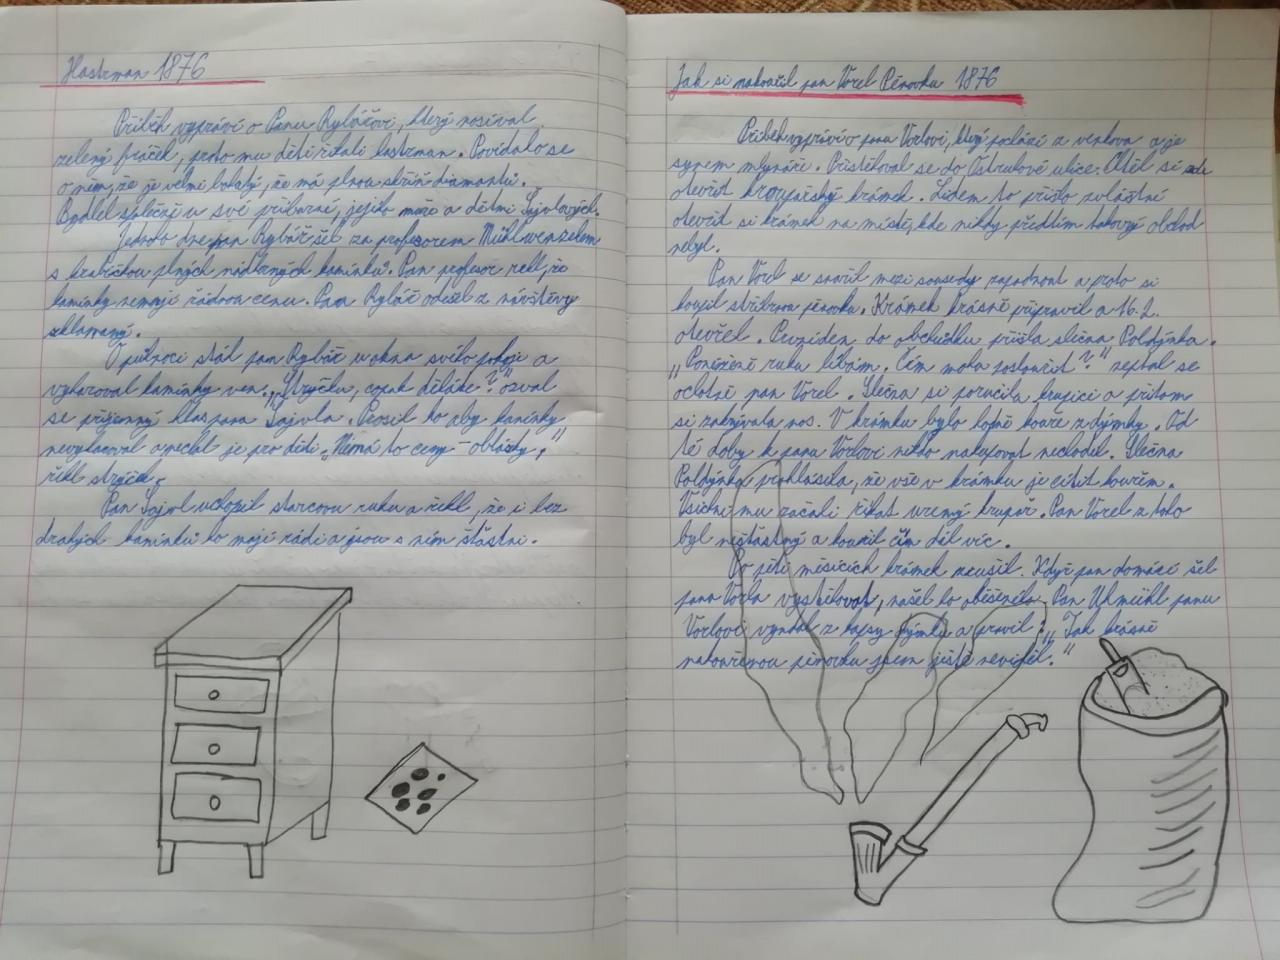 Hastrman 1876
Příběh vypráví o Panu Rybářovi, který nosíval
zelený fráček, proto mu děti říkali hastrman. Povídalo se
o něm, že je velmi bohatý, že má plnou skříň diamantů.
Bydlel společně u své příbuzné, jejího muže a dětmi Šajvlových.
Jednoho dne pan Rybář šel za profesorem Mühlwenzelem
s krabičkou plných nádherných kamínků. Pan profesor řekl, že
kamínky nemají řádnou cenu. Pan Rybář odešel z návštěvy
zklamaný.
O půlnoci stál pan Rybář u okna svého pokoje a
vyhazoval kamínky ven. „Strýčku, copak děláte?" ozval
se příjemný hlas pana Šajvla. Prosil ho aby kamínky
nevyhazoval a nechal je pro děti. „Nemá to ceny – oblásky,"
řekl strýček.
Pan Šajvl uchopil starcovu ruku a řekl, že i bez
drahých kamínků ho mají rádi a jsou s ním šťastni.
Jak si nakouřil pan Vorel Pěnovku 1876
Příběh vypráví o panu Vorlovi, který pochází z venkova a je
synem mlynáře. Přistěhoval se do Ostruhové ulice. Chtěl si zde
otevřít krupařský krámek. Lidem to přišlo zvláštní
otevřít si krámek na místě, kde nikdy předtím takový obchod
nebyl.
Pan Vorel se snažil mezi sousedy zapadnout a proto si
koupil stříbrnou pěnovku. Krámek krásně připravil a 16. 2.
otevřel. První den do obchůdku přišla slečna Poldýnka.
„Poníženě ruku líbám. Čím mohu posloužit?" zeptal se
ochotně pan Vorel. Slečna si poručila krupici a přitom
si zakrývala nos. V krámku bylo hodně kouře z dýmky. Od
té doby k panu Vorlovi nikdo nakupovat nechodil. Slečna
Poldýnka prohlásila, že vše v krámku je cítit kouřem.
Všichni mu začali říkat uzený krupař. Pan Vorel z toho
byl nešťastný a kouřil čím dál víc.
Po pěti měsících krámek zrušil. Když pan domácí šel
pana Vorla vystěhovat, našel ho oběšeného. Pan Uhmühl panu
Vorlovi vyndal z kapsy dýmku a pravil: „Jak krásně
nakouřenou pěnovku jsem ještě neviděl."